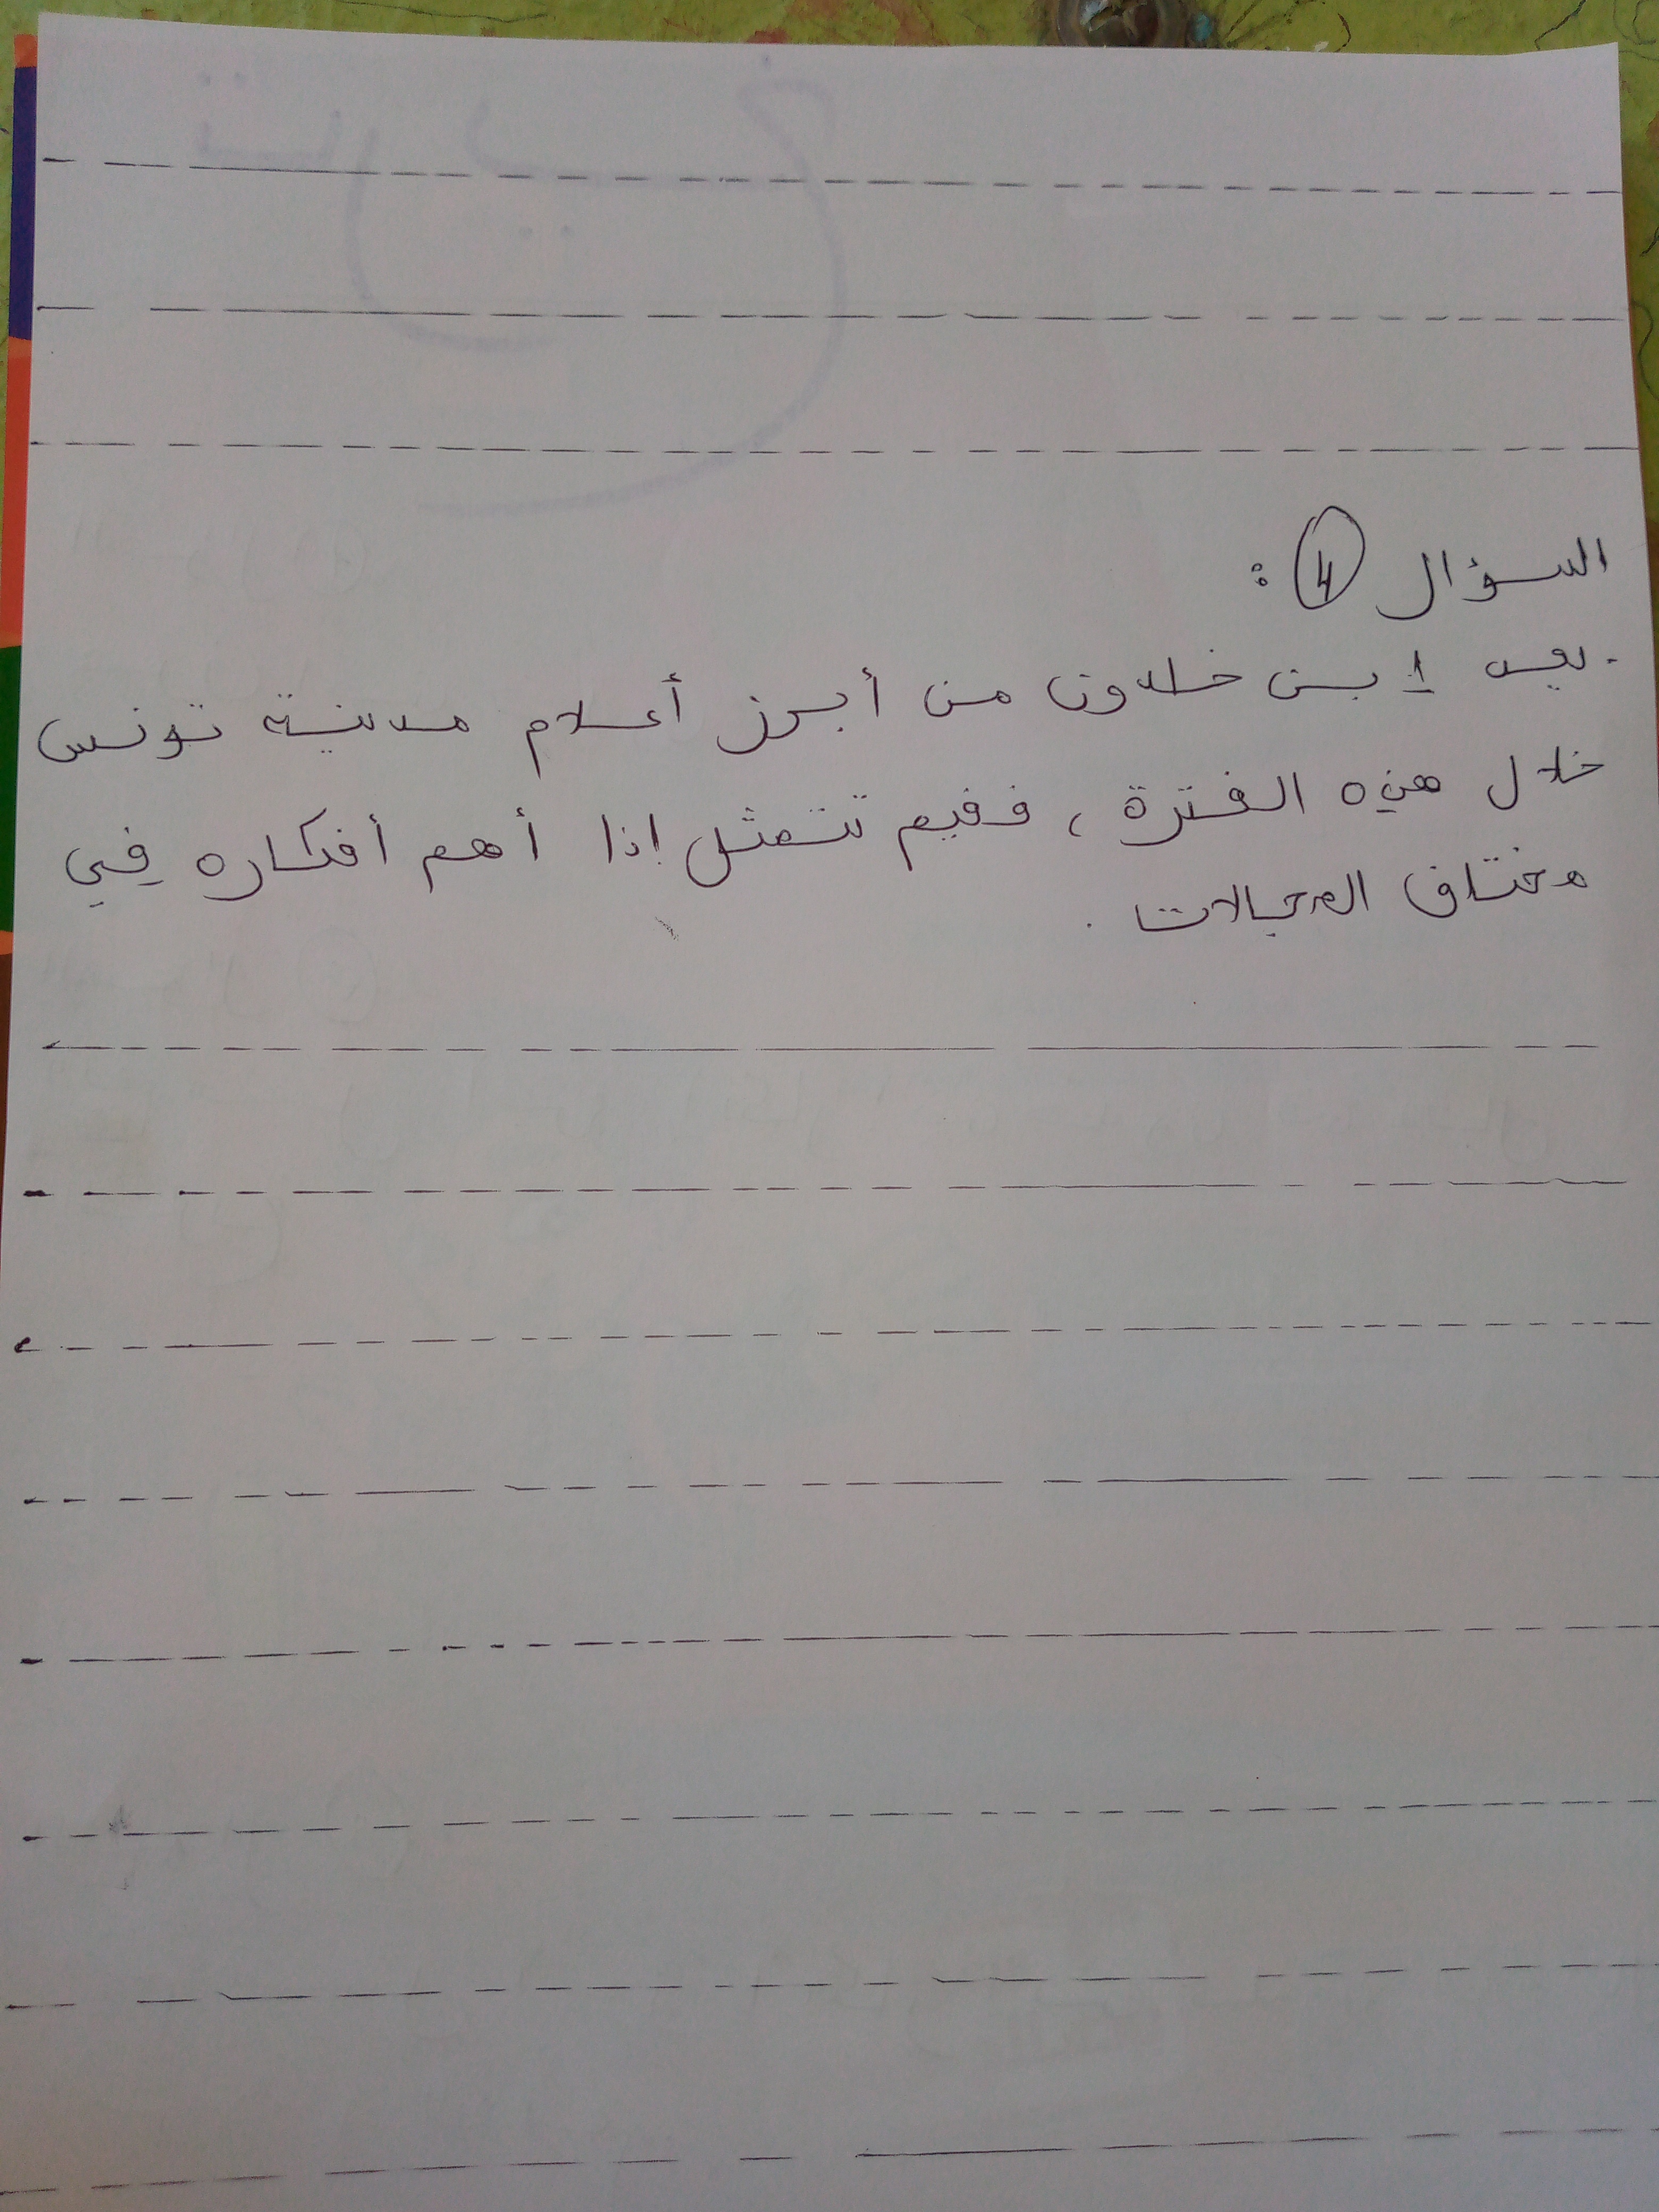 السؤال 4 :
- يعد ابن خلدون من أبرز أعلام مدينة تونس
خلال هذه الفترة ، ففيم تتمثل إذا أهم أفكاره في
مختلف المجالات .